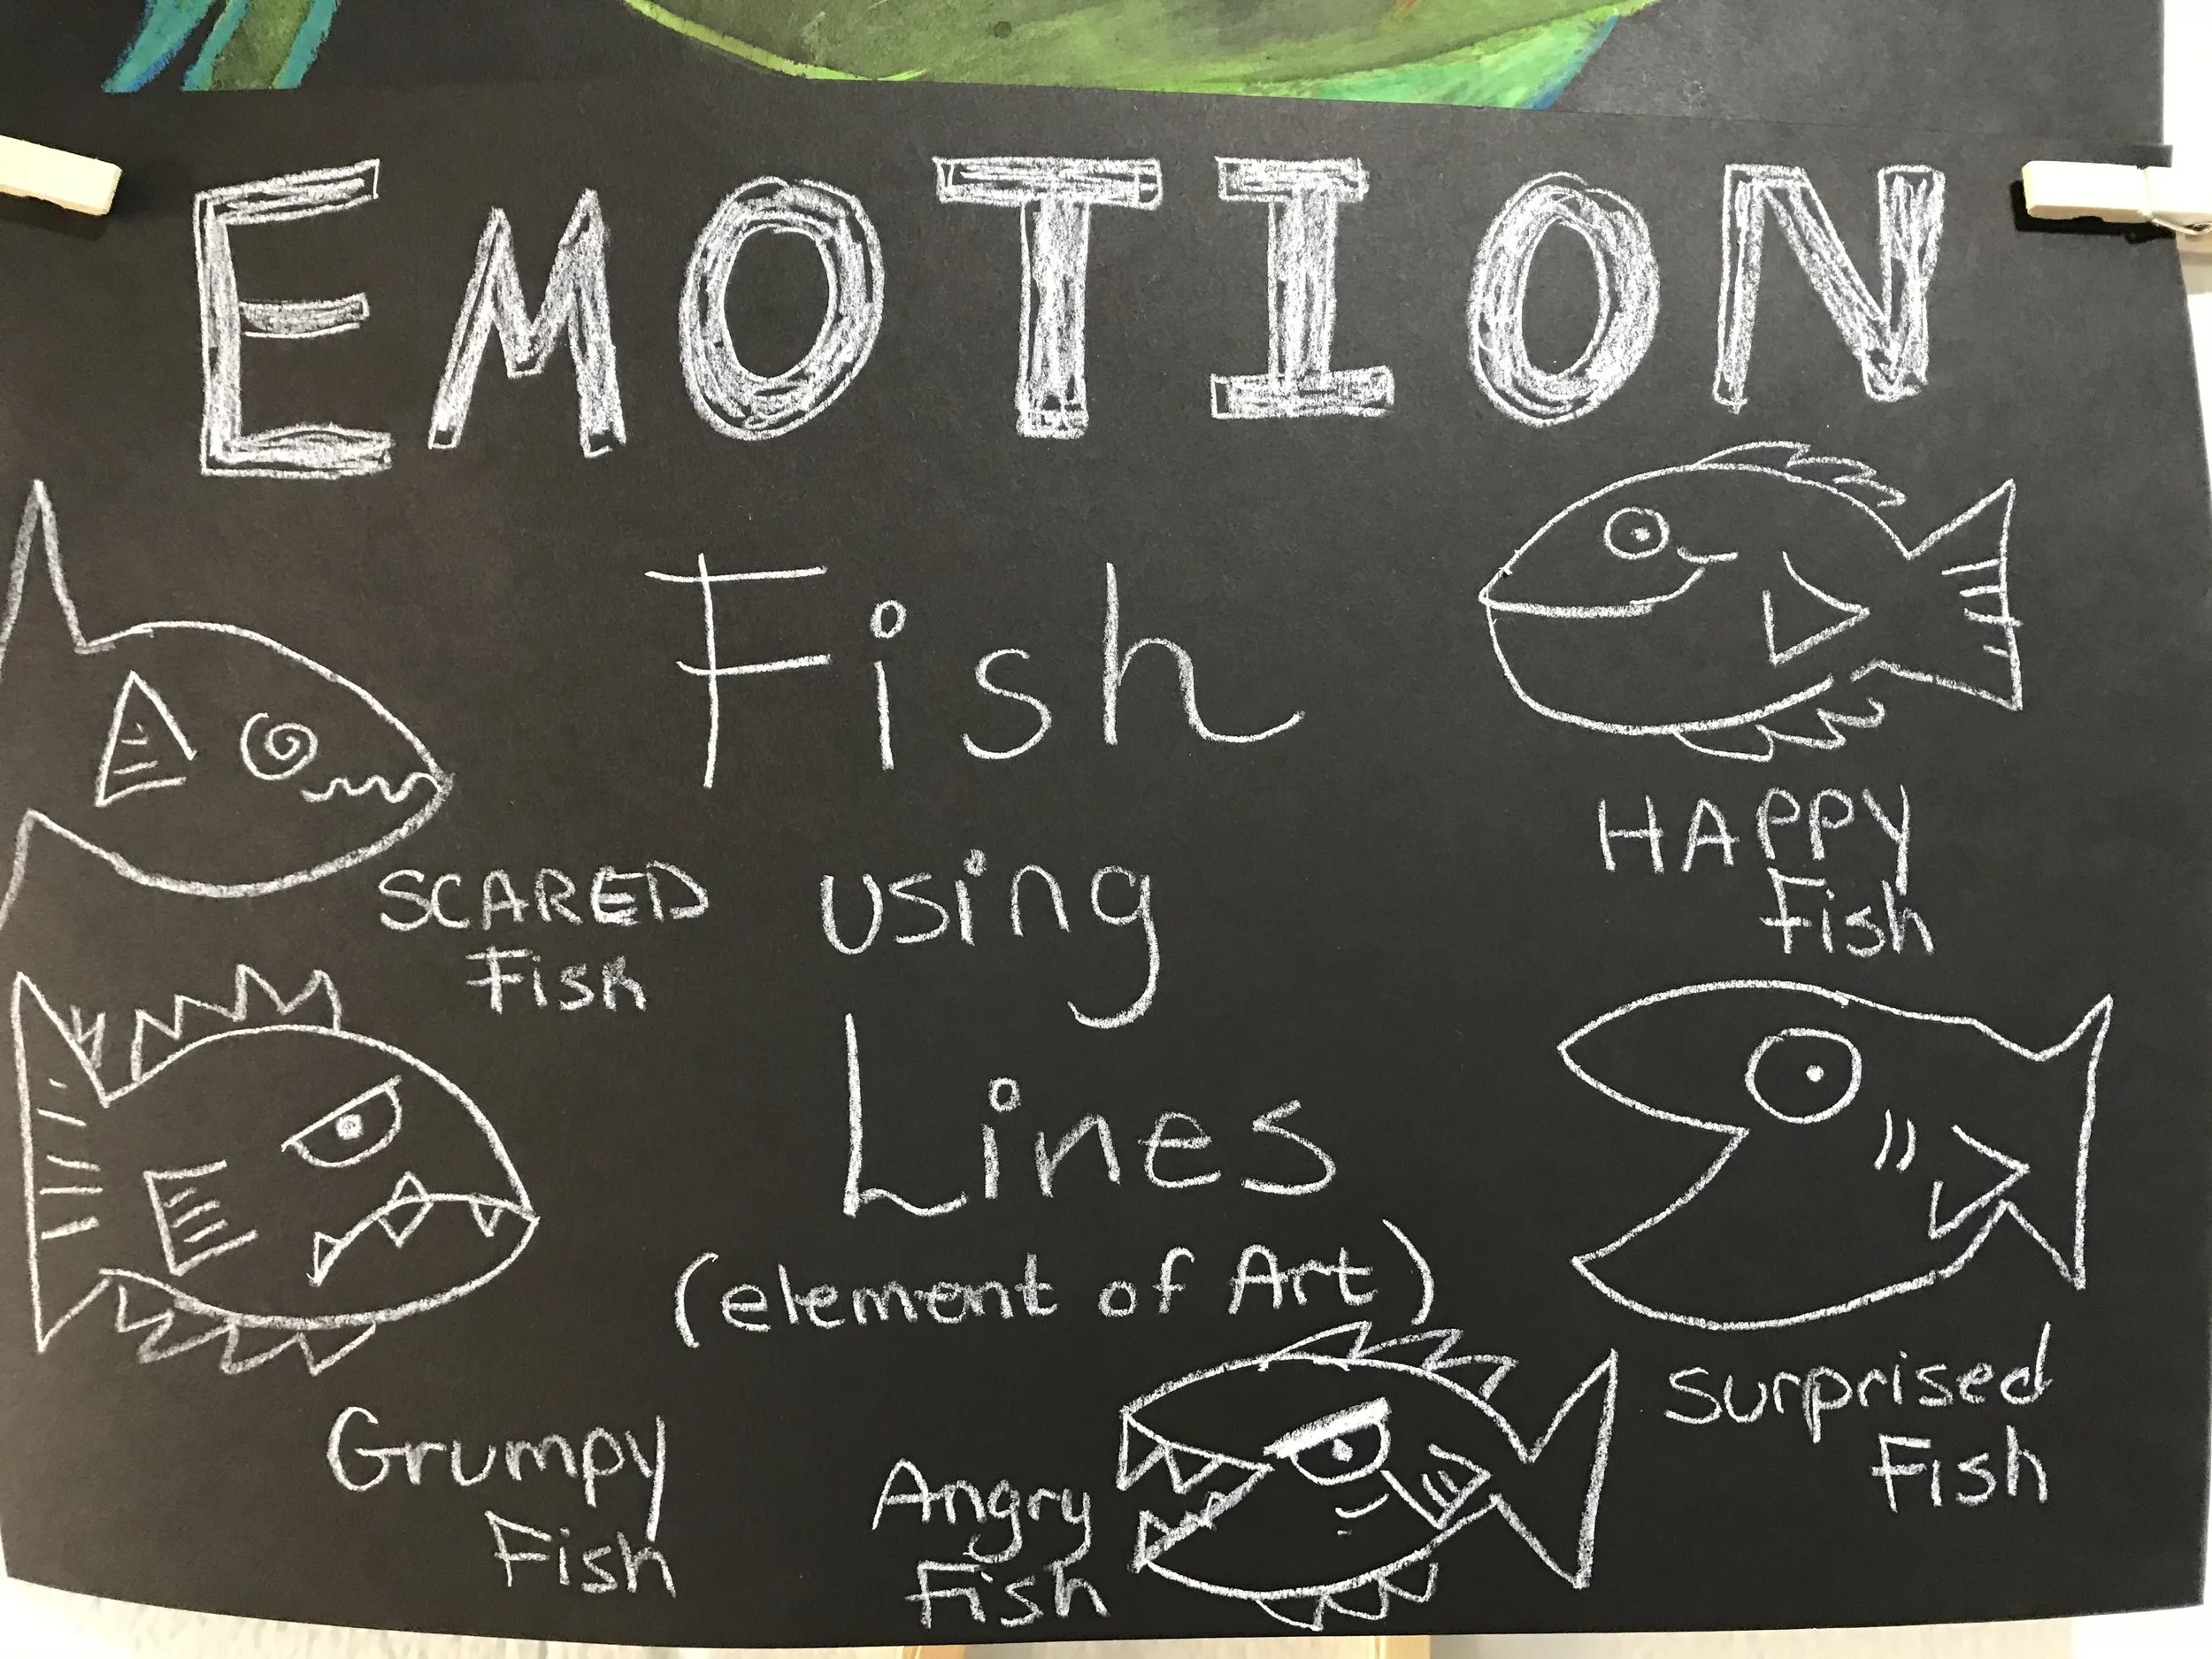 EMOTION
Fish
using
Lines
(element of Art)
SCARED
Fish
HAPPY
Fish
Grumpy
Fish
Angry
Fish
surprised
Fish